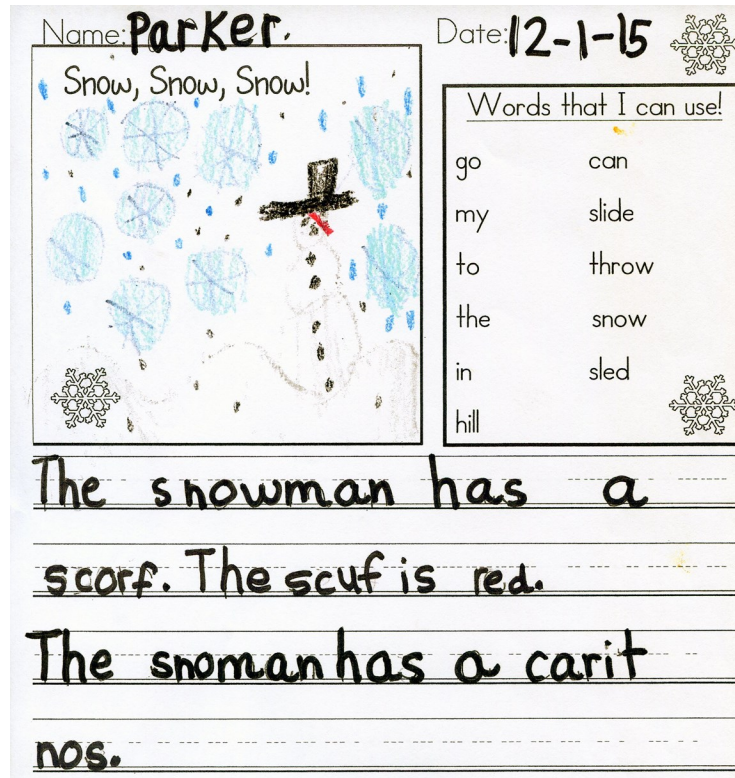 Name: Parker.
Date: 12-1-15
Snow, Snow, Snow!
Words that I can use!
go can
my slide
to throw
the snow
in sled
hill
The snowman has a
scorf. The scuf is red.
The snoman has a carit
nos.